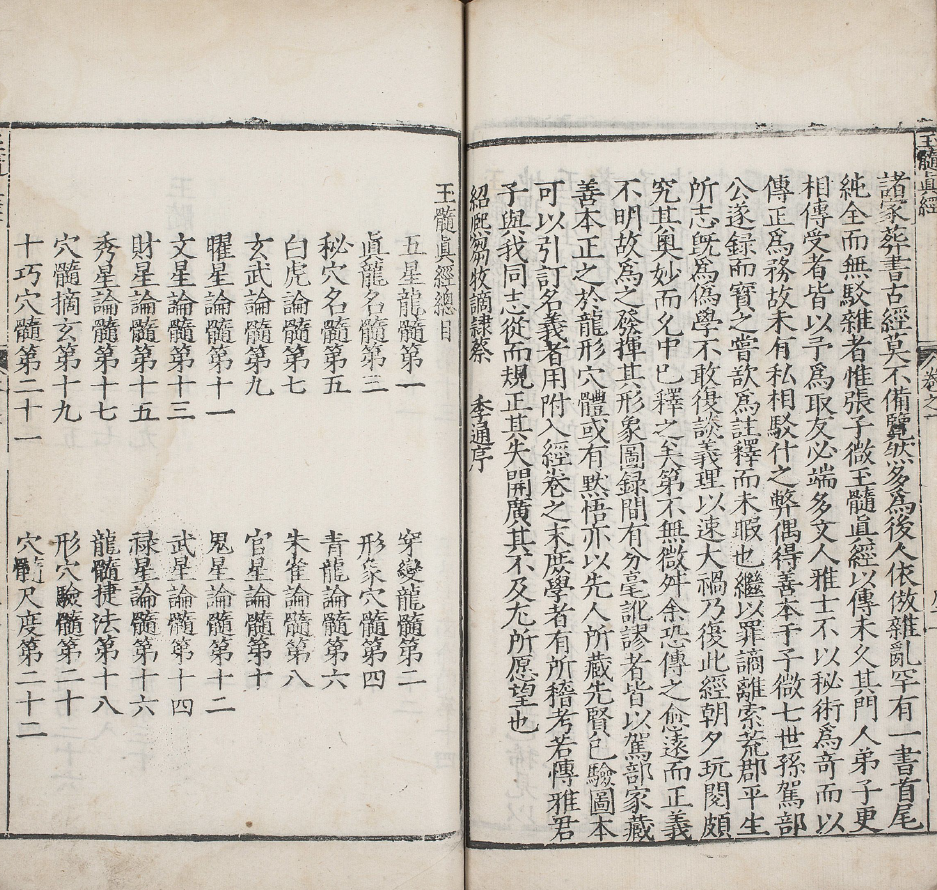 玉髓眞經
卷之一
諸家葬書古經莫不備覽然多為後人依倣雜亂罕有一書首尾
純全而無駁雜者惟張子微玉髓眞經以傳未久其門人弟子更
相傳受者皆以予為取友必端多文人雅士不以秘術為奇而以
傳正為務故未有私相駁什之弊偶得善本于子微七世孫駕部
公遂錄而寶之嘗欲為註釋而未暇也繼以罪謫離索荒郡平生
所志旣為偽學不敢復談義理以速大禍乃復此經朝夕玩閱頗
究其奧妙而允中已釋之矣第不無微舛余恐傳之愈遠而正義
不明故為之發揮其形象圖錄間有分毫訛謬者皆以駕部家藏
善本正之於龍形穴體或有默悟亦以先人所藏先賢已驗圖本
可以引訂名義者用附入經卷之末庶學者有所稽考若博雅君
子與我同志從而規正其失開廣其不及尢所愿望也
紹熈 牧謫隷蔡 季通序
玉髓眞經總目
五星龍髓第一 穿變龍髓第二
眞龍名髓第三 形象穴髓第四
秘穴名髓第五 青龍論髓第六
白虎論髓第七 朱雀論髓第八
玄武論髓第九 官星論髓第十
曜星論髓第十一 鬼星論髓第十二
文星論髓第十三 武星論髓第十四
財星論髓第十五 祿星論髓第十六
秀星論髓第十七 龍髓捷法第十八
穴髓摘玄第十九 形穴驗髓第二十
十巧穴髓第二十一 穴髓尺度第二十二